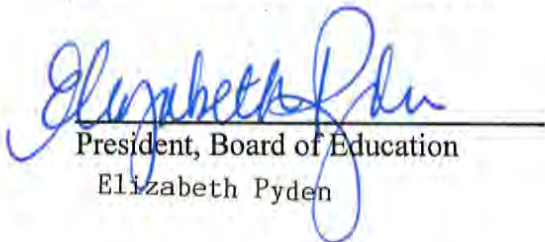 Elizabeth Pyden
President, Board of Education
Elizabeth Pyden